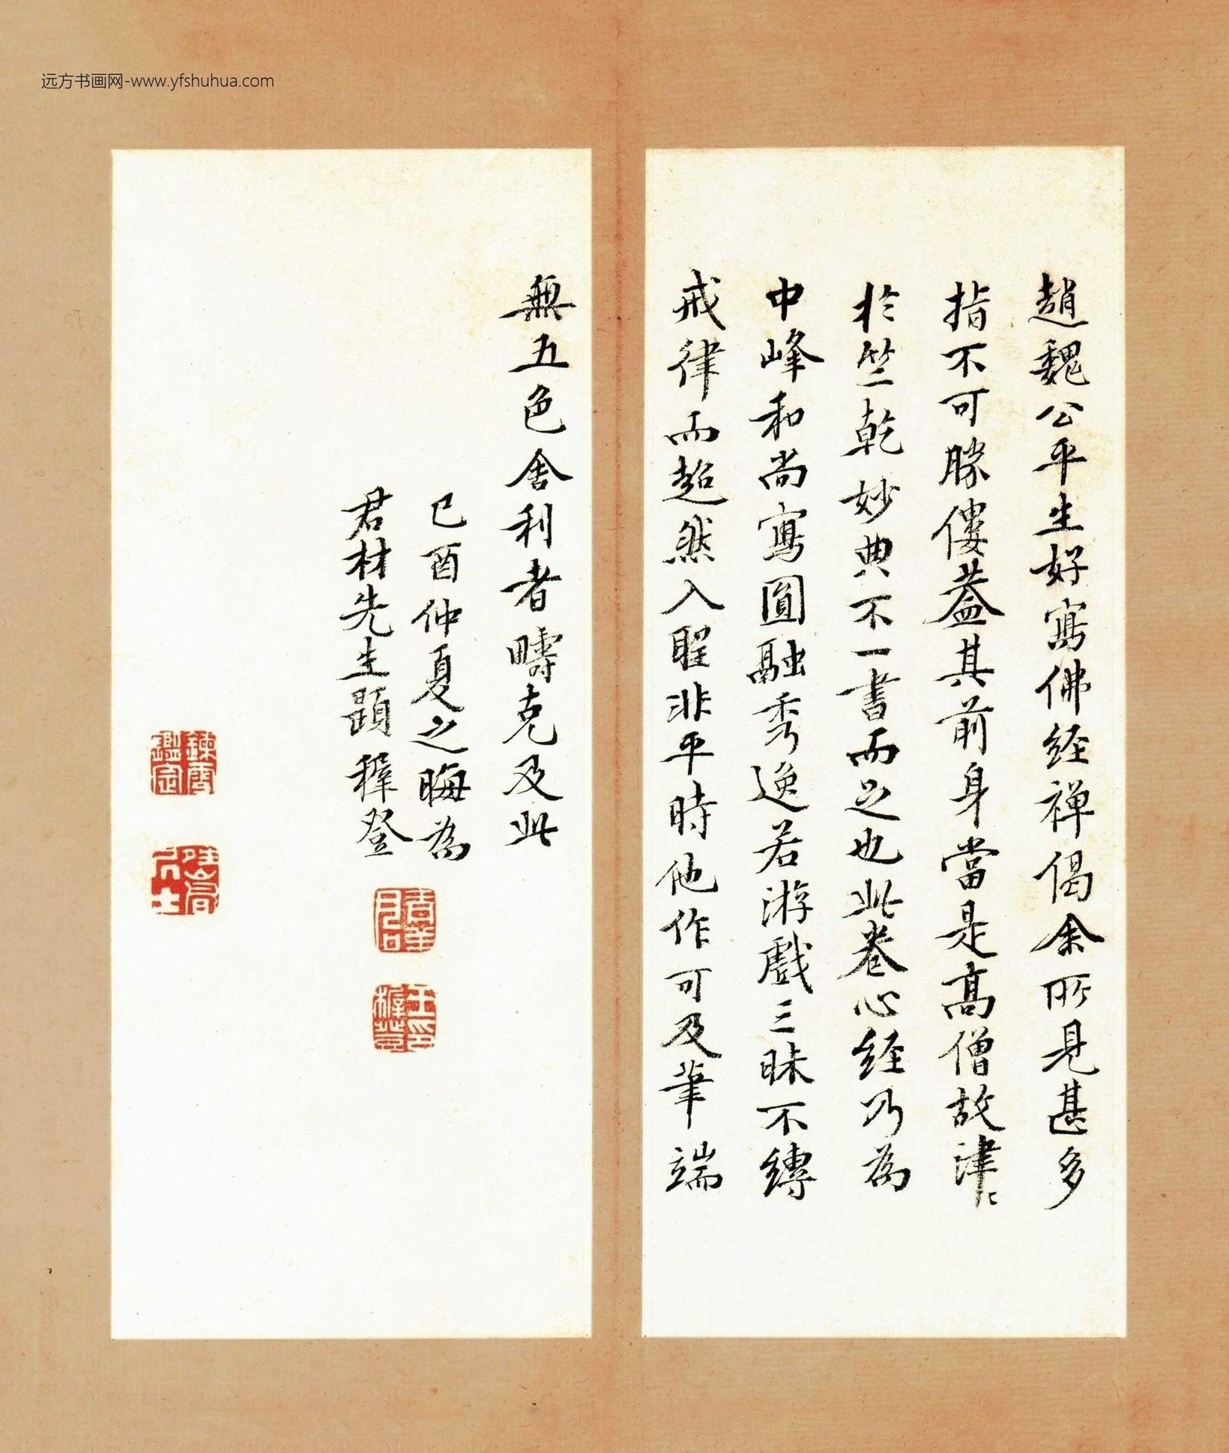 远方书画网-www.yfshuhua.com
趙魏公平生好寫佛經禅偈余所見甚多
指不可勝僂葢其前身當是髙僧故津〻
扵竺乾妙典不一書而足也此卷心經乃為
中峰和尚寫圓融秀逸若游戲三昧不縛
戒律而超然入聖非平時他作可及筆端
無五色舍利者疇克及此
己酉仲夏之晦為
君材先生題穉登
王印
穉登